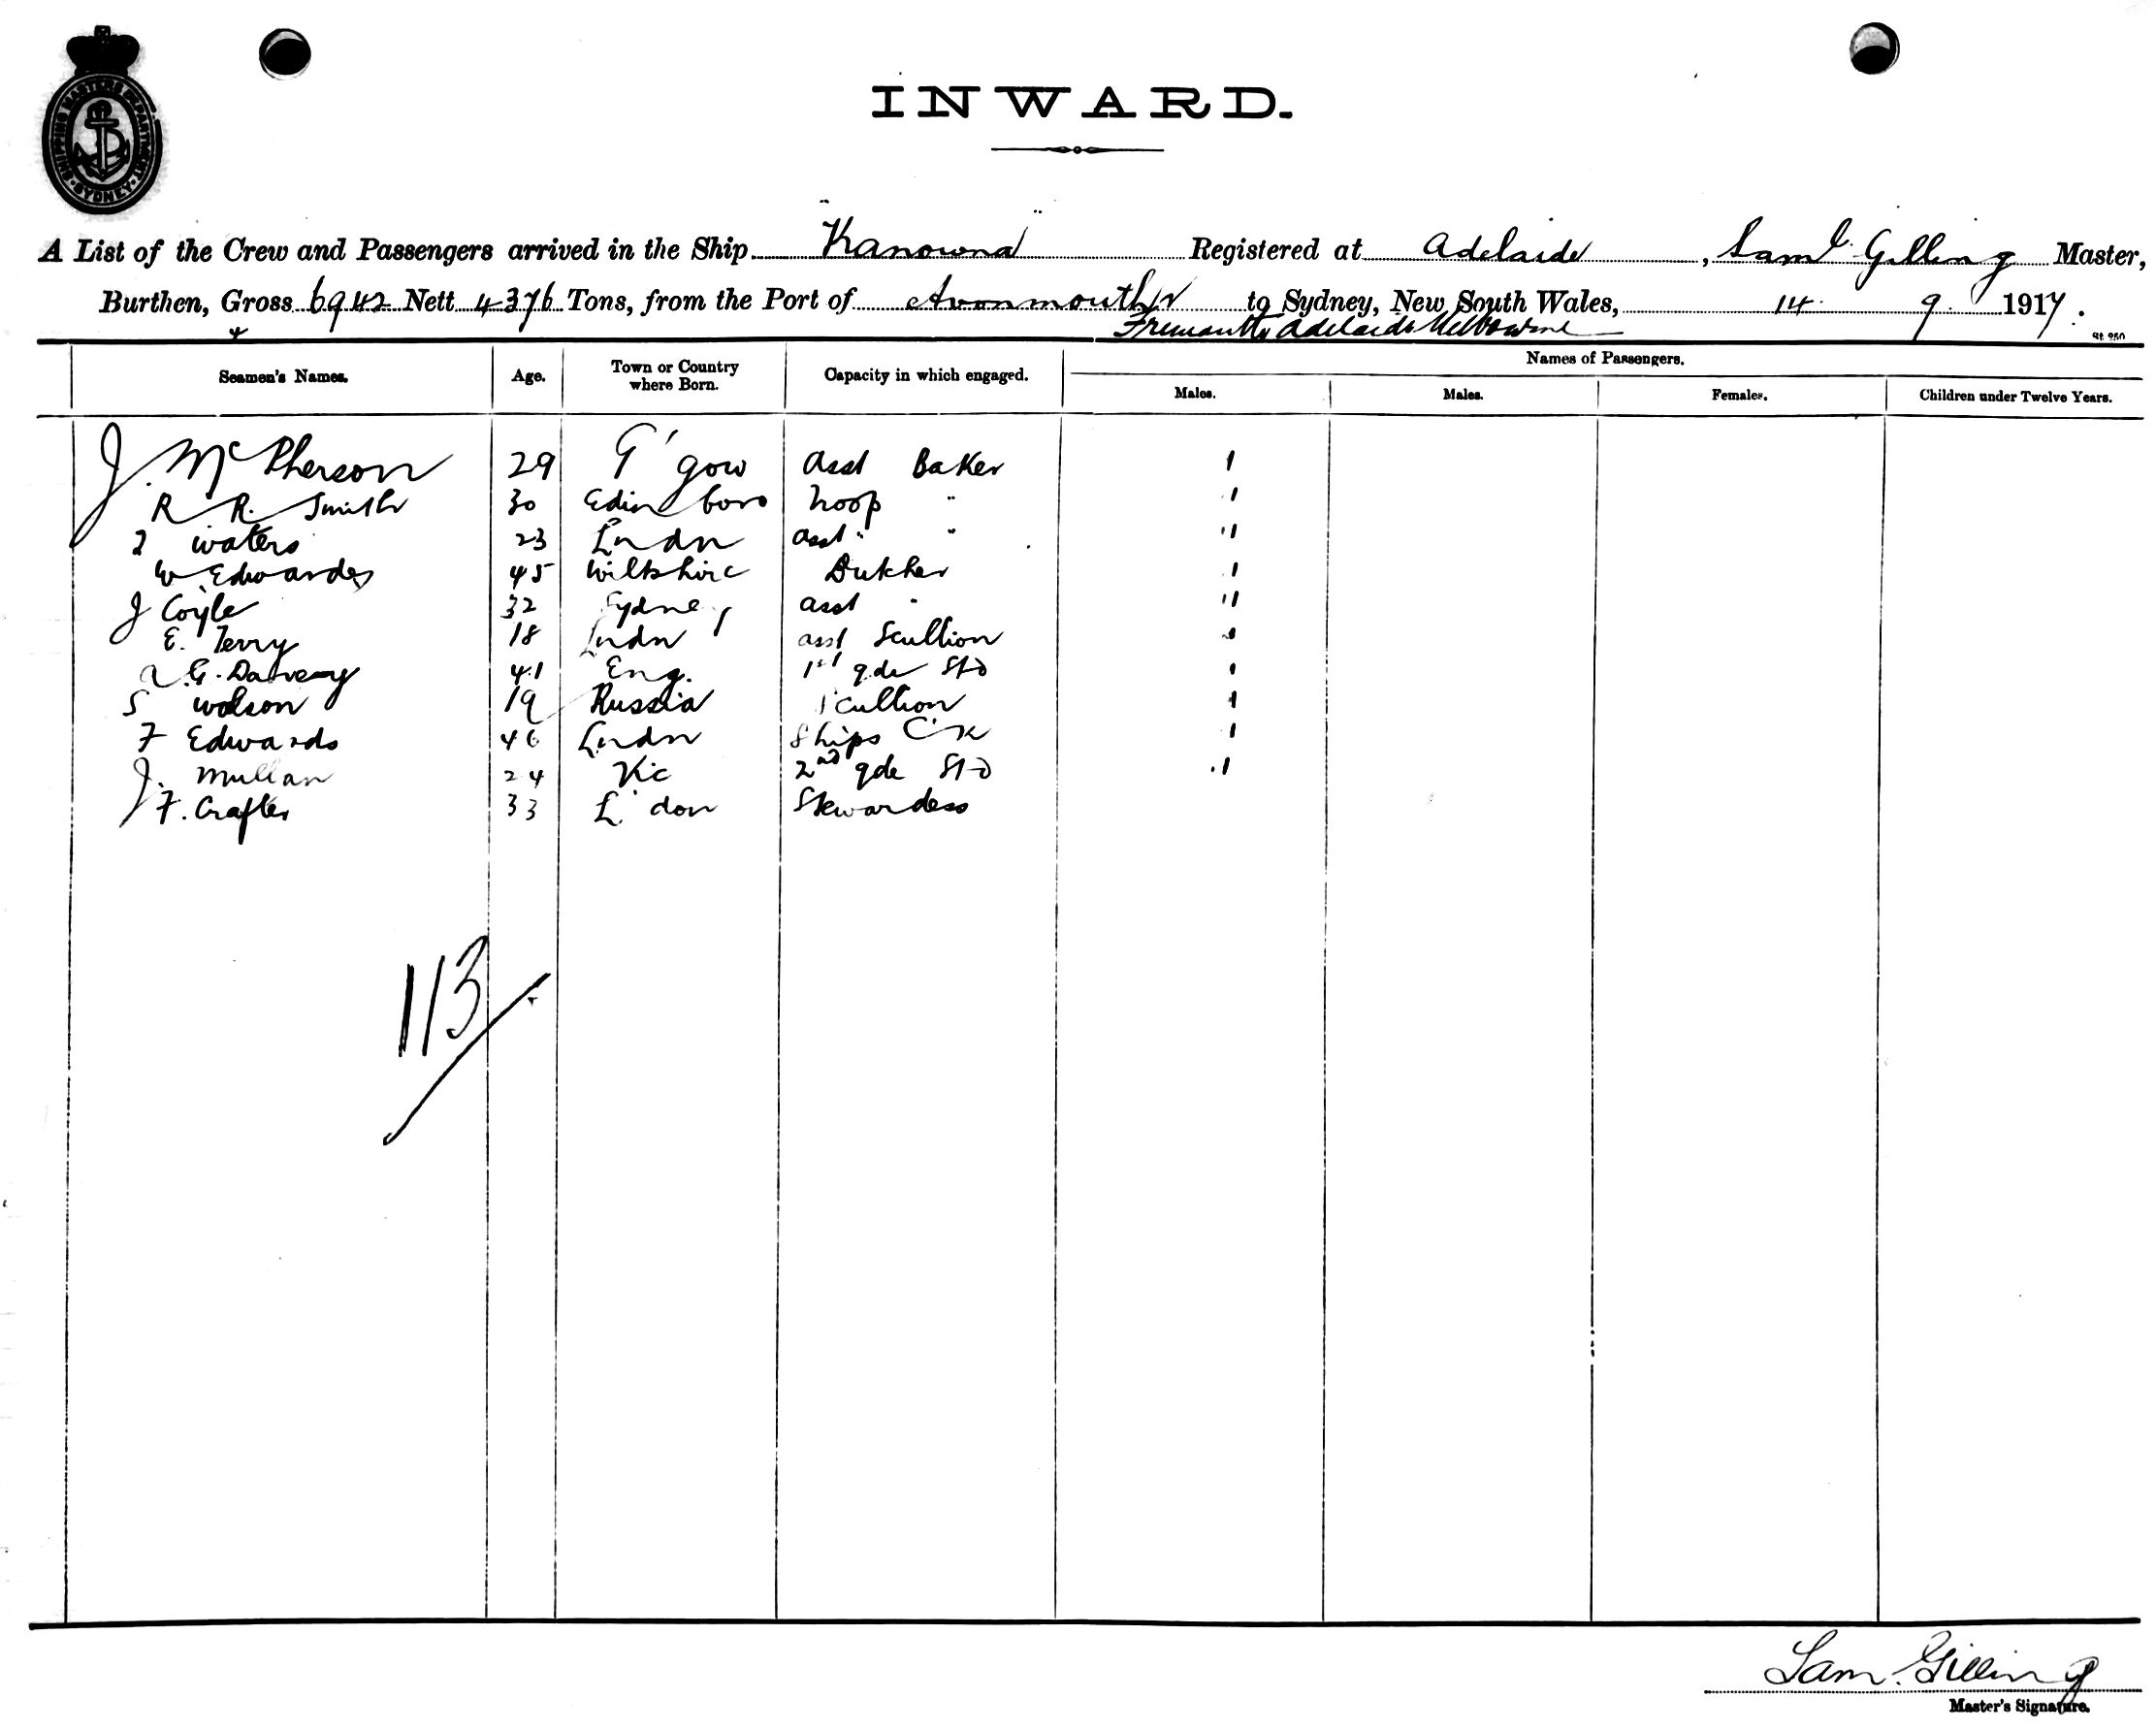 SHIPPING MASTERS DEPARTMENT SYDNEY
INWARD.
A List of the Crew and Passengers arrived in the Ship Kanowna Registered at Adelaide, Saml Gilling Master,
Burthen, Gross 6942 Nett 4376 Tons, from the Port of Avonmouth to Sydney, New South Wales, 14 9 1917.
Fremantle Adelaide Melbourne
Seamen's Names. Age. Town or Country where Born. Capacity in which engaged. Names of Passengers.
Males. Males. Females. Children under Twelve Years.
J. McPherson 29 G'gow Asst Baker 1
R R. Smith 30 Edinboro Troop " 1
waters 23 Lndn Asst " " 11
W Edwards 45 Wiltshire Butcher 1
J Coyle 32 Sydney asst " 11
E. Terry 18 Lndn asst Scullion 1
G. 41 Eng. 1st gde Std 1
S wolson 19 Russia Scullion 1
F Edwards 46 Lndn Ships Ck 1
J. Mullan 24 Vic 2nd gde Std 1
F. Crafter 33 L'don Stewardess
113
Sam. Gilling
Master's Signature.